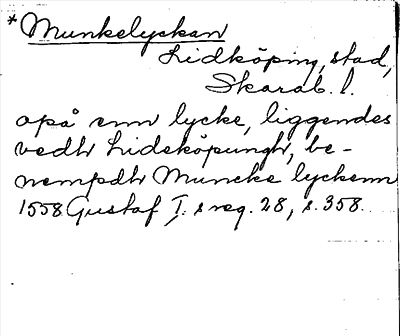 *Munkelyckan
Lidköping, stad,
Skarab. l.
opå enn lycke, liggendes
vedh Lideköpungh, be-
nempdh Muncke lyckenn
1558 Gustaf I:s reg. 28, s. 358.